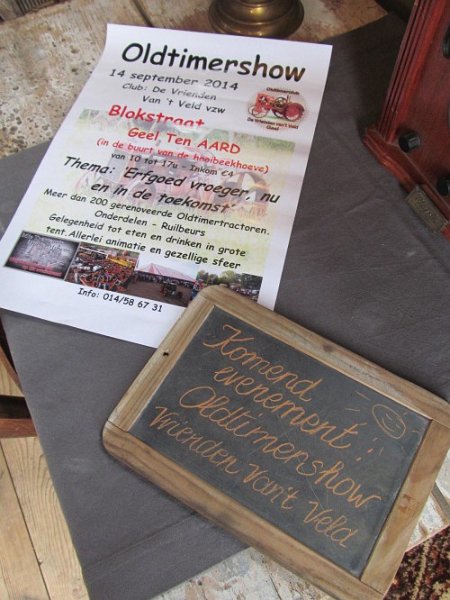 Oldtimershow
14 september 2014
Club: De Vrienden
Van 't Veld vzw
Oldtimerclub
De Vrienden van 't Veld
Geel
Blokstraat
Geel Ten AARD
(in de buurt van de hooibeekhoeve)
van 10 tot 17u - Inkom €4
Thema: 'Erfgoed vroeger, nu
en in de toekomst'
Meer dan 200 gerenoveerde Oldtimertractoren.
Onderdelen - Ruilbeurs
Gelegenheid tot eten en drinken in grote
tent.Allerlei animatie en gezellige sfeer
Info: 014/58 67 31
Komend
evenement:
Oldtimershow
Vrienden Van't Veld